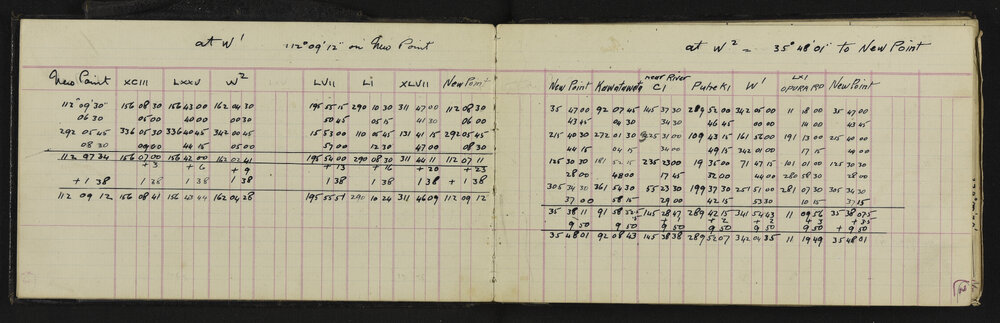 at W' 112° 09' 12" on New Point
New Point XCIII LXXV W² LVII LI XLVII New Point
112° 09' 30" 156 08 30 156 43 00 162 04 30 195 55 15 290 10 30 311 47 00 112 08 30
06 30 05 00 40 00 00 30 50 45 05 15 41 30 06 00
292 05 45 336 05 30 336 40 45 342 00 45 15 53 00 110 05 45 131 41 15 292 05 45
08 30 09 00 44 15 05 00 57 00 12 30 47 00 08 30
112 07 34 156 07 00 156 42 00 162 02 41 195 54 00 290 08 30 311 44 11 112 07 11
+ 3 + 6 + 9 + 13 + 16 + 20 + 23
+ 1 38 1 38 1 38 1 38 1 38 1 38 1 38 + 1 38
112 09 12 156 08 41 156 43 44 162 04 28 195 55 51 290 10 24 311 46 09 112 09 12
at W² = 35° 48' 01" to New Point
near River LXI
New Point Kawatawda C1 Puteki W' OPURARO New Point
35 47 00 92 07 45 145 37 30 289 52 00 342 05 00 11 18 00 35 47 00
43 45 04 30 34 30 46 45 00 00 14 00 43 45
215 40 30 272 01 30 325 31 00 109 43 15 161 56 00 191 13 00 215 40 00
44 15 04 15 34 00 49 15 342 01 00 17 15 49 00
125 30 30 181 52 15 235 23 00 19 35 00 71 47 15 101 01 00 125 30 30
28 00 48 00 17 45 32 00 44 00 280 58 30 28 00
305 34 30 361 54 30 55 23 30 199 37 30 251 51 00 281 07 30 305 34 30
37 00 58 15 29 00 42 15 53 30 10 15 37 15
35 38 11 91 58 52.5 145 28 47 289 42 15 341 54 43 11 09 56 35 38 07.5
+ 2 + 2 4 3 + 3.5
9 50 9 50 9 50 9 50 9 50 9 50 + 9 50
35 48 01 92 08 43 145 38 38 289 52 07 342 04 35 11 19 49 35 48 01